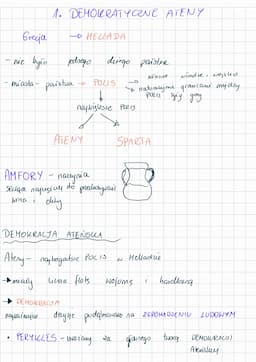 1. DEMOKRATYCZNE ATENY
Grecja → HELLADA
- nie było jednego dużego państwa
- miasta-państwa → POLIS → własne władze, wojsko
→ naturalnymi granicami między POLIS były góry
największe POLIS
ATENY SPARTA
AMFORY - naczynia
służące najczęściej do przechowywania
wina i oliwy
DEMOKRACJA ATEŃSKA
Ateny - najbogatsze POLIS w Helladzie
→ miały silną flotę wojenną i handlową
→ DEMOKRACJA
najważniejsze decyzje podejmowano na ZGROMADZENIU LUDOWYM
• PERYKLES - uważany za głównego twórcę DEMOKRACJI
Ateńskiej